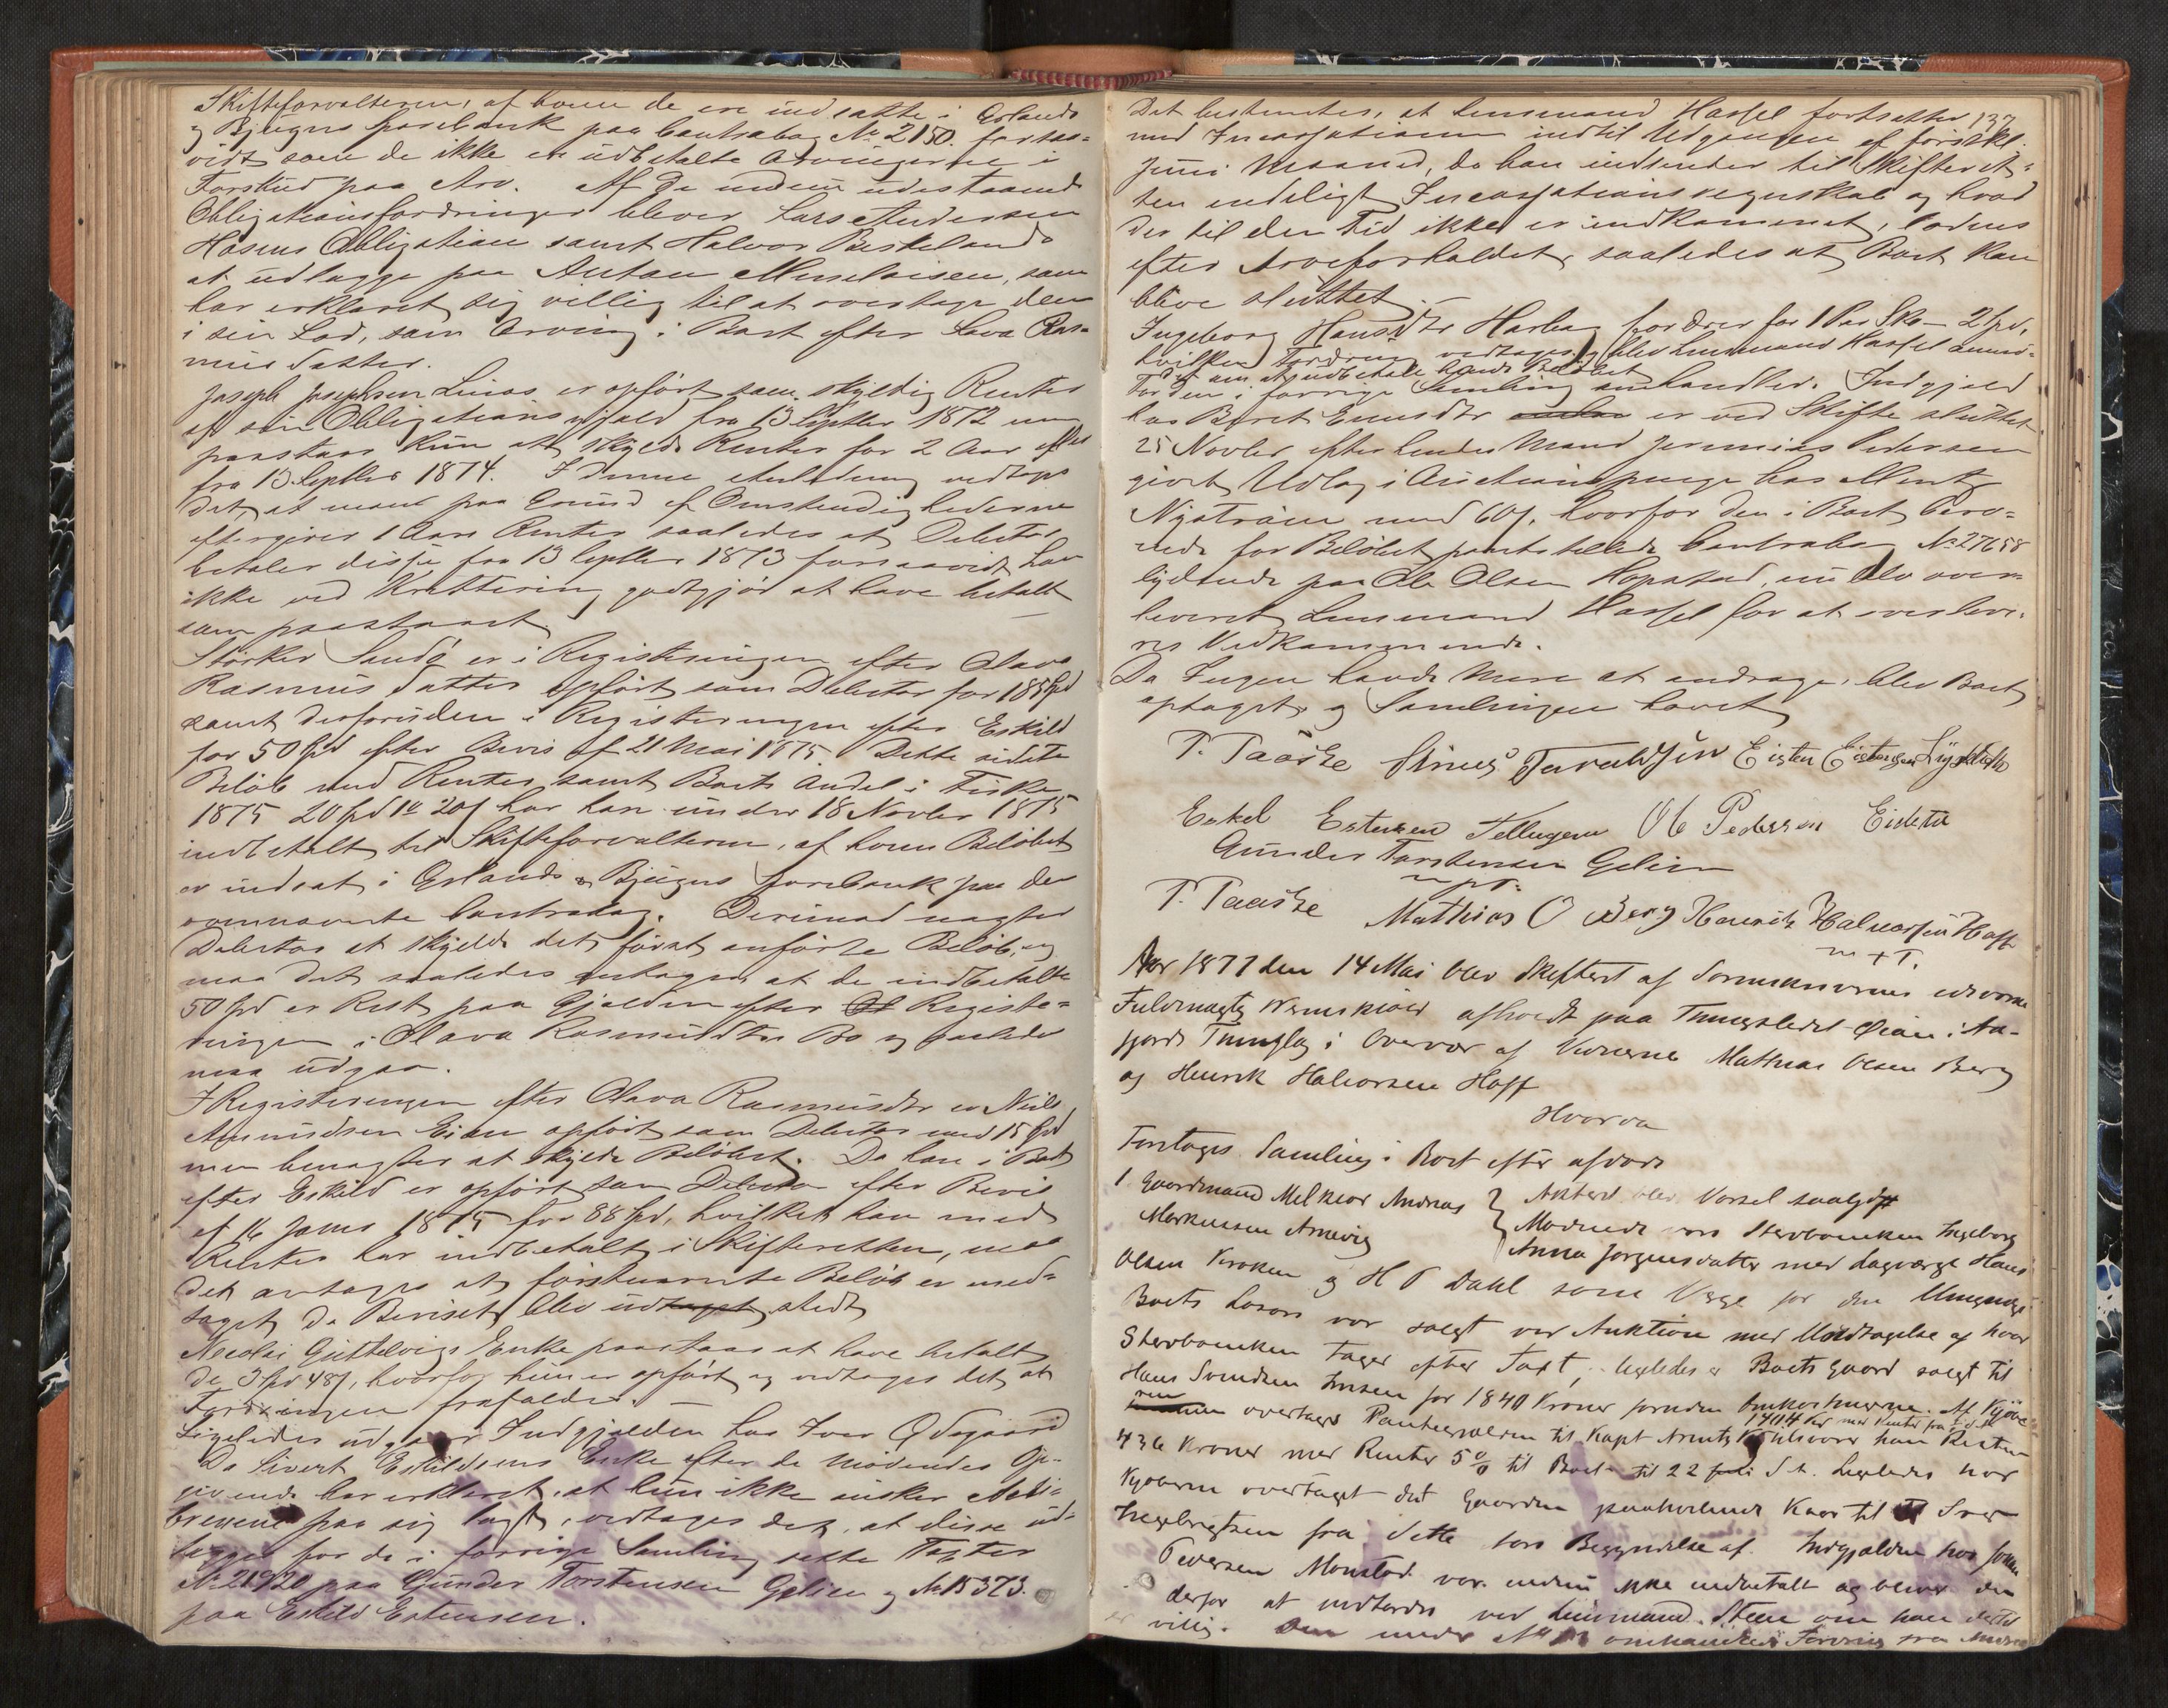 Skifteforvalteren, af hvem de ere indsatte i Ørlands
og Bjugns Sparebank paa Contrabog No 2150. forsaa-
vidt som de ikke er udbetalte Arvingerne i
Forskud paa Arv. Af de endnu udestaaende
Obligationsfordringer blever Lars Andersen
Hosens Obligation samt Halvor Beskelands
at udlægge paa Anton, som
har erklæret sig villig til at overtage den
i sin Lod, som Arving i Boet efter Lava Ras-
mus datter.
Joseph Josephsen Linas er opført som skyldig Renter
af sin Obligationsgjæld fra 13 Septbr 1872 men
paastaar kun at skylde Renter for 2 Aar eller
fra 13 Septbr 1874. I denne Anledning vedtoges
det, at man paa Grund af Omstændighederne
eftergiver 1 Aars Renter saaledes at Debitor
betaler disse fra 13 Septbr 1873 forsaavidt han
ikke ved Kvittering godtgjør at have betalt
som paastaaet.
Størker Sandø er i Registreringen efter Olava
Rasmus datter opført som Debitor for 185 Spd
samt desforuden i Registreringen efter Eskild
for 50 Spd efter Bevis af 21 Mai 1875. Dette sidste
Beløb med Renter samt Boets Andel i Fiske
1875 20 Spd 1 20 har han under 18 Novbr 1875
indbetalt til Skifteforvalteren, af hvem Beløbet
er indsat i Ørlands & Bjugns Sparebank paa den
ovennævnte Contrabog. Derimod nægter
Debitor at skylde det først anførte Beløb, og
maa det saaledes antages at de indbetalte
50 Spd er Rest paa Gjælden efter Registe-
ringen i Olava Rasmusdtrs Bo og saaledes
maa udgaa.
I Registeringen efter Olava Rasmusdtr er Niels
Amundsen Eian opført som Debitor med 15 Spd
men benægter at skylde Beløbet. Da han i Boet
efter Eskild er opført som Debitor efter Bevis
af 16 Janr 1875 for 88 Spd, hvilket han med
Renter har indbetalt i Skifteretten, maa
det antages at førstnævnte Beløb er med-
taget da Beviset blev udstedt
Nicolai Guttelvigs Enke paastaar at have betalt
de 3 Spd 48, hvorfor hun er opført og vedtages det, at
Fordringen frafaldes.
Ligeledes udgaar Indgjælden hos Iver Ødegaard
Da Sivert Eskildsens Enke efter de mødendes Op-
givende har erklæret, at hun ikke ønsker
paa sig lagt, vedtages det, at disse ud-
lægges for de i forrige Samling satte Taxter
No 21920 paa Gunder Torstensen Gilien og No 15373
paa Eskild Estensen.
137
Det bestemtes, at Lensmand Hassel fortsætter
med Incassationen indtil Udgangen af førstkl.
Juni Maaned, da han indsender til Skifteret-
ten endeligt Incassationsregnskab og hvad
der til den Tid ikke er indkommet, lodnes
efter Arveforholdet, saaledes at Boet kan
blive sluttet.
Ingeborg Hansdtr Harbag fordrer for 1 Par Sko 2 Spd,
hvilken Fordring vedtages og blev Lensmand Hassel anmo-
det om at udbetale hende Beløbet
For den i forrige Samling omhandlede Indgjæld
hos Beret Enersdtr er ved Skifte sluttet
25 Novbr efter hendes Mand Jeremias Pedersen
givet Udlæg i Auctionspenge hos Mentz
Nystrøm med 60, hvorfor den i Boet bero-
ende for Beløbet pantstillede Contrabog No 27658
lydende paa Ole Olsen Hopstad, nu blev over-
leveret Lensmand Hassel for at overleve-
res Vedkommende.
Da Ingen havde Mere at andrage, blev Boet
optaget og Samlingen hævet
T. Taaske Sivert Taraldsen Eisten Eistensen
Eskel Estensen Tellugen Ole Pedersen Eidetu
Gunder Torstensen Gilien
m.p.P.
T. Taaske Mathias O Berg Henrik Halvorsen Hoff
m + P.
Aar 1877 den 14 Mai blev Skifteret af Sorenskriverens edsvorne
Fuldmægtig Wernskiold afholdt paa Thingstedet Øian i Aa-
fjords Thinglag i Overvær af Vidnerne Mathias Olsen Berg
og Henrik Halvorsen Hoff
Hvorda
Foretoges Samling i Boet efter afdøde
1 Gaardmand Melkior Andreas
Markussen Arnevig
Anført blev Varsel saalydt
Mødende vare Stervboenken Ingeborg
Anna Jørgensdatter med Lagværge Hans
Olsen Kroken og H P Dahl som Værge for den Umyndige
Boets Løsøre var solgt ved Auktion med Undtagelse af hvad
Stervboenken tager efter Taxt, ligeledes er Boets Gaard solgt til
Hans Svendsen for 1840 Kroner foruden Omkostningerne. Af Kjøbe-
overtages Pantegjælden til Kapt 1404 Kr med Renter
436 Kroner med Renter 5% til Boet til 22 Juli d A. Ligeledes har
Kjøberen overtaget det Gaarden paahvilende Kaar til
Ingebrigtsen fra dette Aars Begyndelse af. Indgjælden hos
Pedersen Monstad var endnu ikke indbetalt og bliver den
derfor at indfordre ved Lensmand Steen om han dertil
er villig. Den under omhandlede Fordring fra